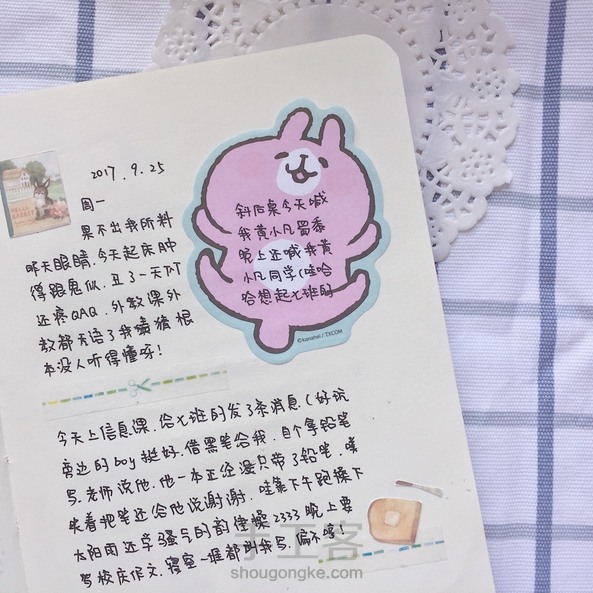 2017.9.25
周一
果不出我所料
昨天眼睛.今天起床肿
得跟鬼似.丑了一天T^T
还疼QAQ.外教课外
教都无语了我嘀猜根
本没人听得懂呀!
斜后桌今天喊
我黄小凡蜀黍
晚上还喊我黄
小凡同学(哇哈
哈想起七班的
©kanahei / TXCOM
今天上信息课.给七班的发了条消息.(好说
旁边的boy挺好.借黑笔给我.自个拿铅笔
写.老师说他.他一本正经说只带了铅笔.噗
笑着把笔还给他说谢谢.哇集下午跑操下
太阳雨还草骚气的韵律操2333晚上要
写校庆作文.寝室一堆都叫我写.偏不写!
手工客
shougongke.com